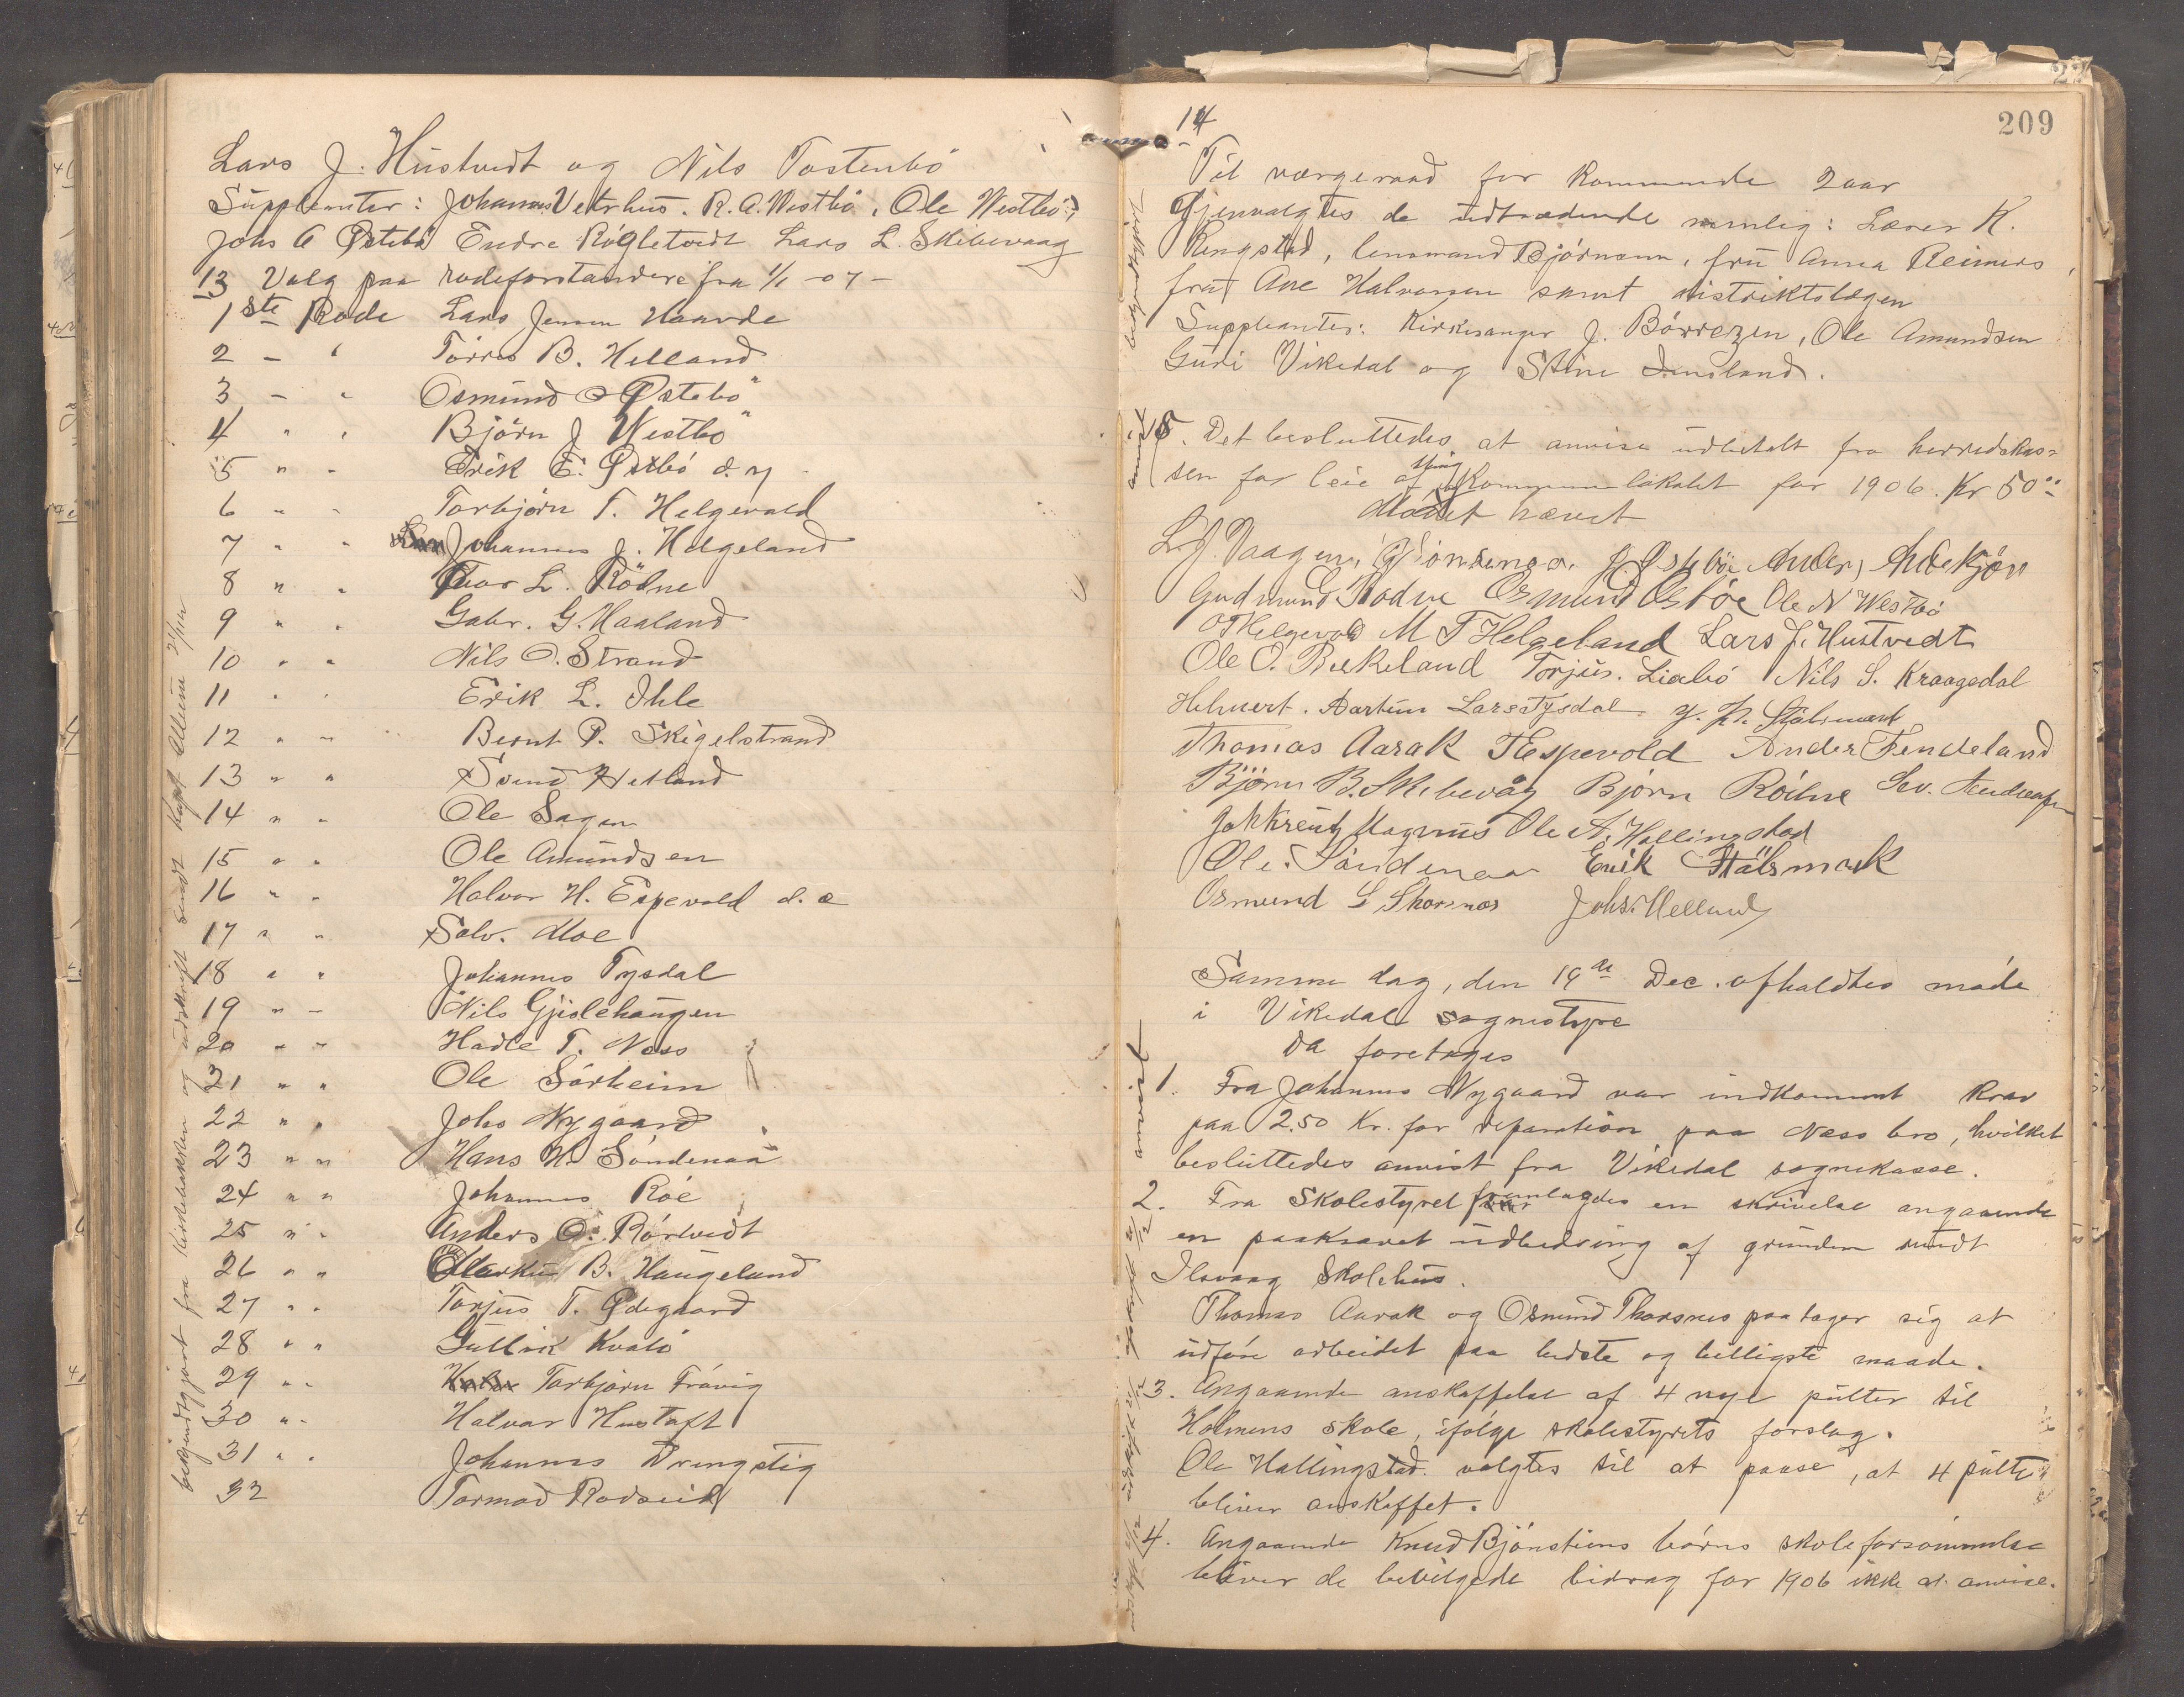 Lars J. Hustvedt og Nils Tostenbö
Suppleanter: Johannes Vetrhus. R. A. Westbö, Ole Westbö,
Johs A Østebö Endre Rögletvedt Lars L. Skibevaag
13 Valg paa rodeforstandere fra 1/1 -07-
1ste Rode Lars Jensen Haavde
2 - " Törres B. Helland
3 - " Osmund O Østebö
4 " " Björn J Westbö
5 " " Erik E. Østbö d. y
6 " " Torbjörn T. Helgevold
7 " " Johannes J. Helgeland
8 " " Ivar L. Rödne
9 " " Gabr. G. Haaland
10 " " Nils O. Strand
11 " " Erik L. Ihle
12 " " Bernt P. Skigelstrand
13 " " Svend Hetland
14 " " Ole Sagen
15 " " Ole Amundsen
16 " " Halvor H. Espevold d. e
17 " " Salv. Moe
18 " " Johannes Tysdal
19 " - Nils Gjislehaugen
20 " " Hadle T. Næss
21 " " Ole Sörheim
22 " " Johs Nygaard
23 " " Hans H. Söndenaa
24 " " Johannes Röe
25 " " Anders O. Rörtvedt
26 " " B. Haugeland
27 " " Torjus T. Ødegaard
28 " " Gullik Kvalö
29 " " Torbjörn Frövig
30 " " Halvor Hustoft
31 " " Johannes Drengstig
32 Tormod Rodseik
bekjendtgjort fra Kirkebakken og udskrift sendt Kapt. 21/1 07
209
14
Til værgeraad for kommende 2 aar
Gjenvalgtes de udtrædende nemlig: Lærer K.
Ringstad, lensmand Björnsen, fru Anna Reimers,
fru Ane Halvorsen samt distriktslægen
Suppleanter: Kirkesanger J. Börrezen, Ole Amundsen
Guri Vikedal og Stine Imsland.
15. Det besluttedes at anvise udbetalt fra herredskas=
sen for leie af ting & Kommunelokalet for 1906. Kr 50 00
Mödet hævet
L. J. Vaagen, G Söndenaa. J. Östeböe Anders Andekjön
Gudmund Rodne Osmund Östböe Ole N Westbö
O T Helgevold M T Helgeland Lars J. Hustvedt
Ole O. Birkeland Torjus. Liabö Nils S. Kraagedal
Helmert. Aartun Lars Tysdal
Thomas Aarak T Espevold Ander Fendeland
Björn B. Skibevåg Björn Rödne Sev. Andersen
Joh Kreutz Magnus Ole A. Hallingstad
Ole. Söndenaa Erik Stålsmark
Osmund L Thorsnæs Johs. Helland
Samme dag, den 19de Dec. afholdtes möde
i Vikedal sognestyre
Da foretoges
1. Fra Johannes Nygaard var indkommet krav
paa 2.50 Kr. for reparation paa Næss bro, hvilket
besluttedes anvist fra Vikedal sognekasse.
2. Fra Skolestyret fremlagdes en skrivelse angaaende
en paakrævet udbedring af grunden rundt
Ilsvaag Skolehus.
Thomas Aarak og Osmund Thorsnes paatager sig at
udföre arbeidet paa bedste og billigste maade.
3. Angaaende anskaffelse af 4 nye pulter til
Holmens skole, ifölge skolestyrets forslag.
Ole Hallingstad valgtes til at passe, at 4 pulte
bliver anskaffet.
4. Angaaende Knud Björnstiens börns skoleforsömmelse
bliver de bevilgede bidrag for 1906 ikke at anvise.